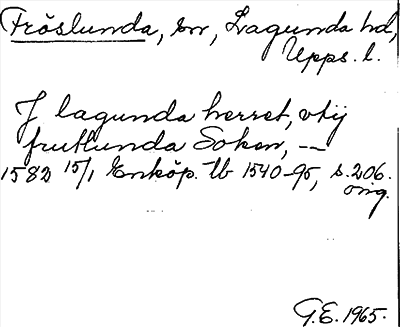 Fröslunda, sn, Lagunda hd,
Upps. l.
J lagunda herret, vtij
frutlunda Soken, --
1582 15/1 Enköp. tb 1540-95, s. 206.
orig.
G.E. 1965.